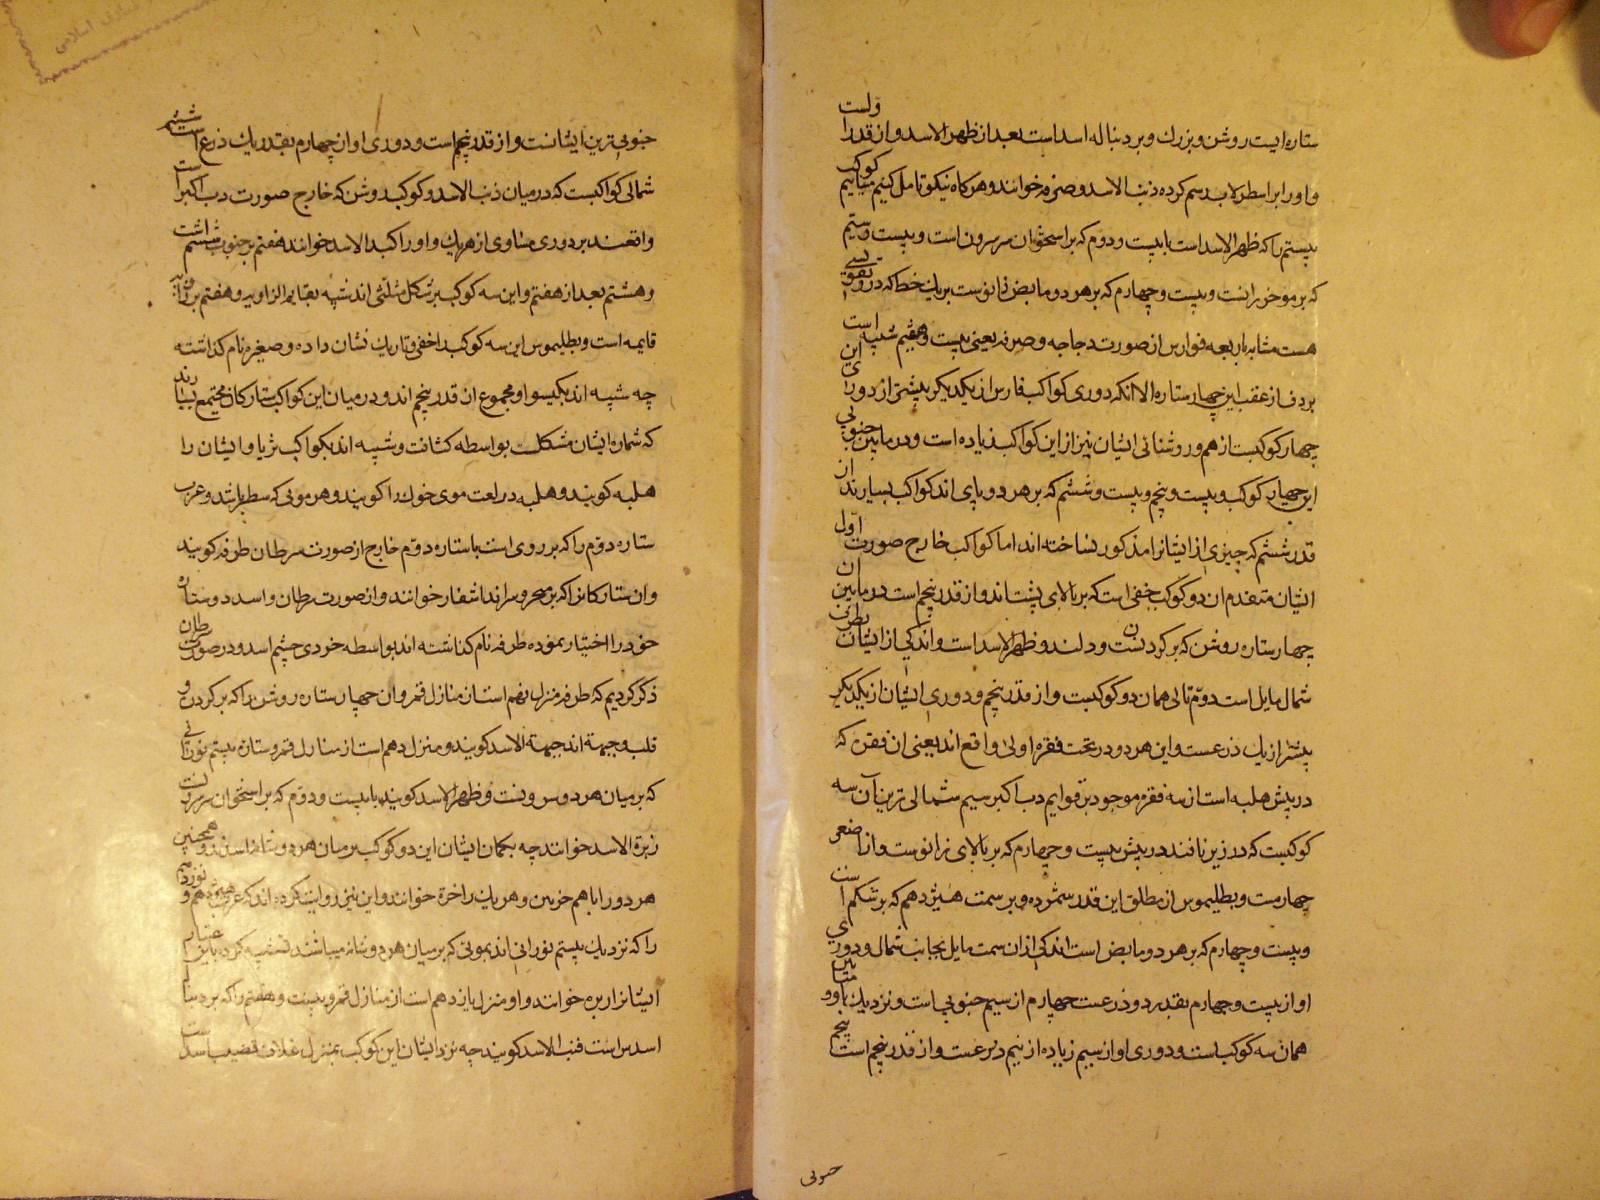 ستاره ایست روشن و بزرک و بر دنباله اسد است بعد از ظهر الاسد و از قدر اولست
و او را بر اسطرلاب رسم کرده ذنب الاسد و صرفه خوانند و هر کاه نیکو تامل کنیم مییابیم کوکب
بیستم را که ظهر الاسد است با بیست و دوم که بر استخوان سرسرون است و بیست و ستم
که بر موخر رانست و بیست و چهارم که بر هر دو مابض زانوست بر یک خط که در و تقویسی
هست مشابه باربعه فوارس از صورت دجاجه و صرفه یعنی بیست و هفتم شبیه است
بردف از عقب این چهار ستاره الا انکه دوری کواکب فارس از یکدیکر بیشتر از دوری این
چهار کوکبست از هم و روشنائی ایشان نیز از این کواکب زیاده است و در مابین جنوبی
این چهار کوکب و بیست و پنجم و بیست و ششم که بر هر دو پای اند کواکب بسیارند از
قدر ششم که چیزی از ایشانرا مذکور نساخته اند اما کواکب خارج صورت اول
ایشان متقدم ان دو کوکب خفی است که بر بالای پشت اند و از قدر پنجم است در مابین ان
چهار ستاره روشن که بر کردنست و دلند و ظهر الاسد است و اندکی از ایشان بطرف
شمال مایل است دوم تالی همان دو کوکبست و از قدر پنجم و دوری ایشان از یکدیکر
بیشتر از یک ذرعست و این هر دو در تحت فقره اولی واقع اند یعنی ان فقره که
در پیش هلبه است از سه فقره موجود بر قوایم دب اکبر سیم شمالی ترین آن سه
کوکبست که در زیر نافند در پیش بیست و چهارم که بر بالای زانوست و از اصغر
چهارمست و بطلیموس از مطلق این قدر شمرده و بر سمت هیژدهم که بر شکم است
و بیست و چهارم که بر هر دو مابض است اندکی از ان سمت مایل بجانب شمال و دوری
او از بیست و چهارم بقدر دو ذرعست چهارم از سیم جنوبی است و نزدیک باو و مابین
همان سه کوکب است و دوری او از سیم زیاده از نیم ذرعست و از قدر پنجم است پنجم
جنوبی
جنوبی ترین ایشانست و از قدر پنجم است و دوری او از چهارم بقدر یک ذرع است ششم
شمالی کواکبست که در میان ذنب الاسد و کوکب روشن که خارج صورت دب اکبر است
واقعند بر دوری مساوی از هر یک و او را کبد الاسد خوانند هفتم بر جنوب ششم است
و هشتم بعد از هفتم و این سه کوکب بر شکل مثلثی اند شبیه بقایم الزاویه و هفتم بر زاویه
قایمه است و بطلیموس این سه کوکب را خفی و تاریک نشان داده و صغیره نام کذاشته
چه شبیه اند بکیسو او مجموع از قدر پنجم اند و در میان این کواکب ستارکان مجتمع بسیارند
که شماره ایشان مشکلست بواسطه کثافت و شبیه اند بکواکب ثریا و ایشان را
هلبه کویند و هلبه در لغت موی خوک را کویند و هر موئی که سطبر باشد و عرب
ستاره دوم را که بر روی است با ستاره دوم خارج از صورت سرطان طرفه کویند
و ان ستارکانرا که بر منخر و سراند اشفار خوانند و از صورت سرطان و اسد دو ستاره
خورد را اختیار نموده طرفه نام کذاشته اند بواسطه خردی چشم اسد و در صورت سرطان
ذکر کردیم که طرفه منزل نهم است از منازل قمر و ان چهار ستاره روشن را که بر کردن و
قلب و جبهة اند جبهة الاسد کویند و منزل دهم است از منازل قمر و ستاره بیستم نورانی
که بر میان هر دو سروینست و ظهر الاسد کویند با بیست و دوم که بر استخوان سرینست
زبرة الاسد خوانند چه بکمان ایشان این دو کوکب بر میان هر دو شانه اسدند و همچنین
هر دو را با هم خرتین و هر یک را خرة خوانند و این نیز روایت کرده اند که عرب هیژدهم و نوزدهم
را که نزدیک بیستم نورانی اند بموئی که بر میان هر دو شانه میباشند تشبیه کرده باین اعتبار
ایشانرا زبره خوانند و او منزل یازدهم است از منازل قمر و بیست و هفتم را که بر دنبال
اسد است قنب الاسد کویند چه نزد ایشان این کوکب بمنزل غلاف قضیب اسد است